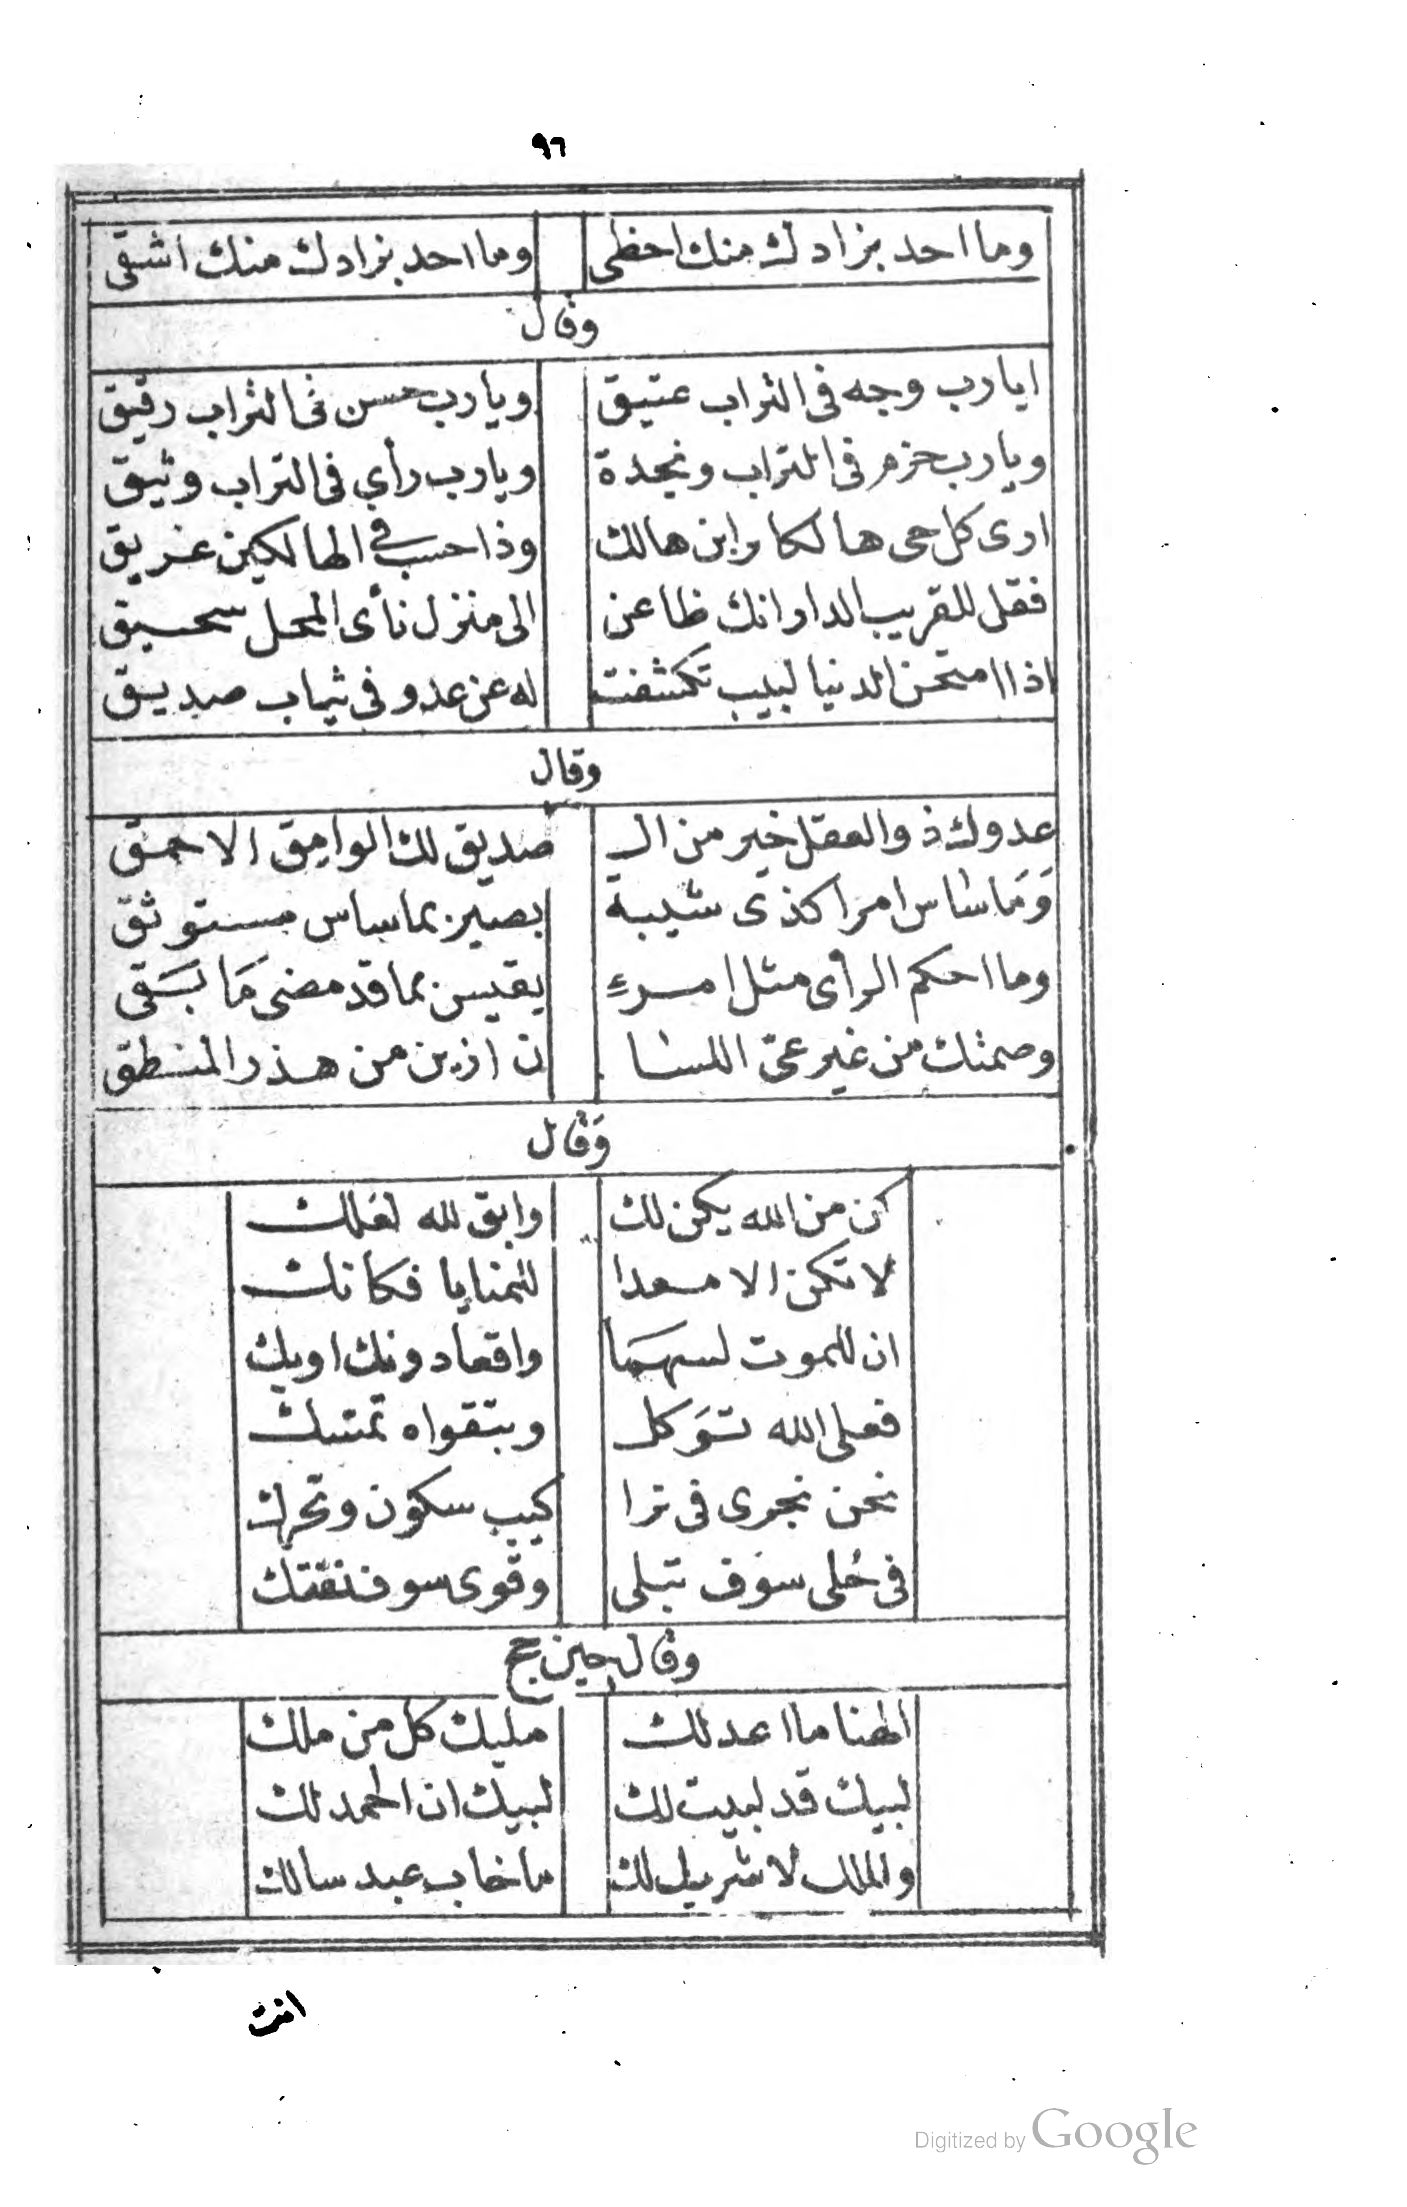 ٩٦
وما احد بزادك منك احظى وما احد بزادك منك اشقى
وقال
ايارب وجه فى التراب عتيق ويارب حسن فى التراب رقيق
ويارب حزم فى التراب ونجدة ويارب رأي فى التراب وثيق
ارى كل حى هالكا وابن هالك وذا حسب فى الهالكين عريق
فقل للقريب الدار انك ظاعن الى منزل نأى المحل سحيق
اذا امتحن الدنيا لبيب تكشفت له عن عدو فى ثياب صديق
وقال
عدوك ذو العقل خير من الـ صديق لك الوامق الاحمق
وَمَا ساس امرا كذى شيبة بصير بما ساس مستوثق
وما احكم الرأى مثل امرء يقيس بما قد مضى مَا بَقى
وصمتك من غير عىّ اللسا ن ازين من هذر المنطق
وَقال
كن من الله يكن لك واتق لله لعلك
لا تكن الا معدا للمنايا فكانك
ان للموت لسهمَا واقعا دونك اوبك
فعلى الله توَكل وبتقواه تمسك
نحن نجرى فى ترا كيب سكون وتحرك
فى حُلى سوف تبلى وقوى سوف تفتك
وقال حين حج
الهنا ما اعدلك مليك كل من ملك
لبيك قد لبيت لك لبيك ان الحمد لك
والملك لا شريك لك ما خاب عبد سالك
انت
Digitized by Google